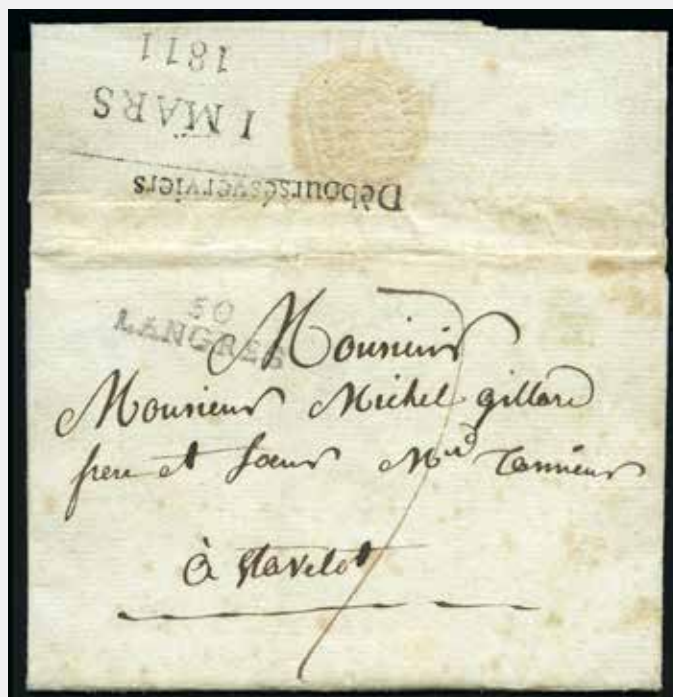 1811
1 MARS
Déboursésverviers
50
LANGRES
Monsieur
Monsieur Michel gillard
frere et Soeur Md Tanneur
à Stavelot
7